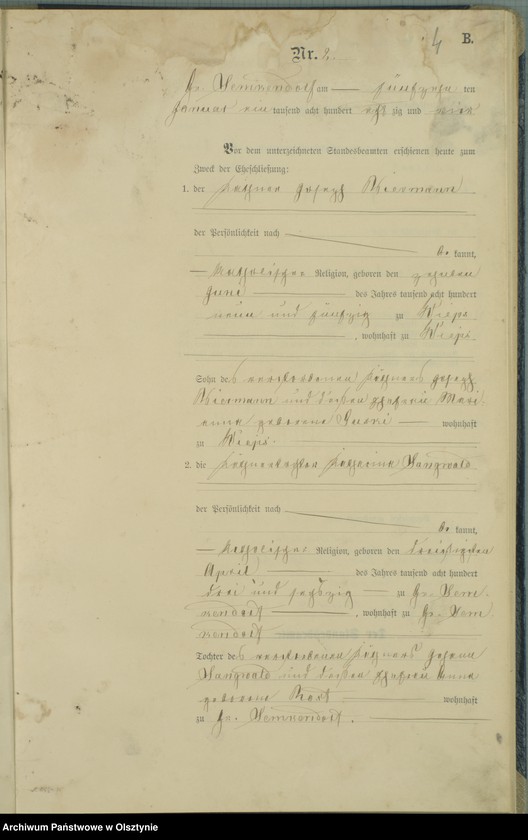 4
B.
Nr. 2.
Gr. Lemkendorf am fünfzehn ten
Januar ein tausend acht hundert acht zig und vier
Vor dem unterzeichneten Standesbeamten erschienen heute zum
Zweck der Eheschließung:
1. der Käthner Joseph Biermann
der Persönlichkeit nach
be kannt,
katholischer Religion, geboren den zehnten
Juni des Jahres tausend acht hundert
neun und fünfzig zu Wieps
, wohnhaft zu Wieps
Sohn des verstorbenen Käthners Joseph
Biermann und dessen Ehefrau Mari
anna geborene wohnhaft
zu Wieps
2. die Käthnertochter Katharina Langwald
der Persönlichkeit nach
be kannt,
katholischer Religion, geboren den dreißigsten
April des Jahres tausend acht hundert
drei und sechszig zu Gr. Lem-
kendorf , wohnhaft zu Gr. Lem
kendorf
Tochter des verstorbenen Käthners Johann
Langwald und dessen Ehefrau Anna
geborene wohnhaft
zu Gr. Lemkendorf.
Archiwum Państwowe w Olsztynie